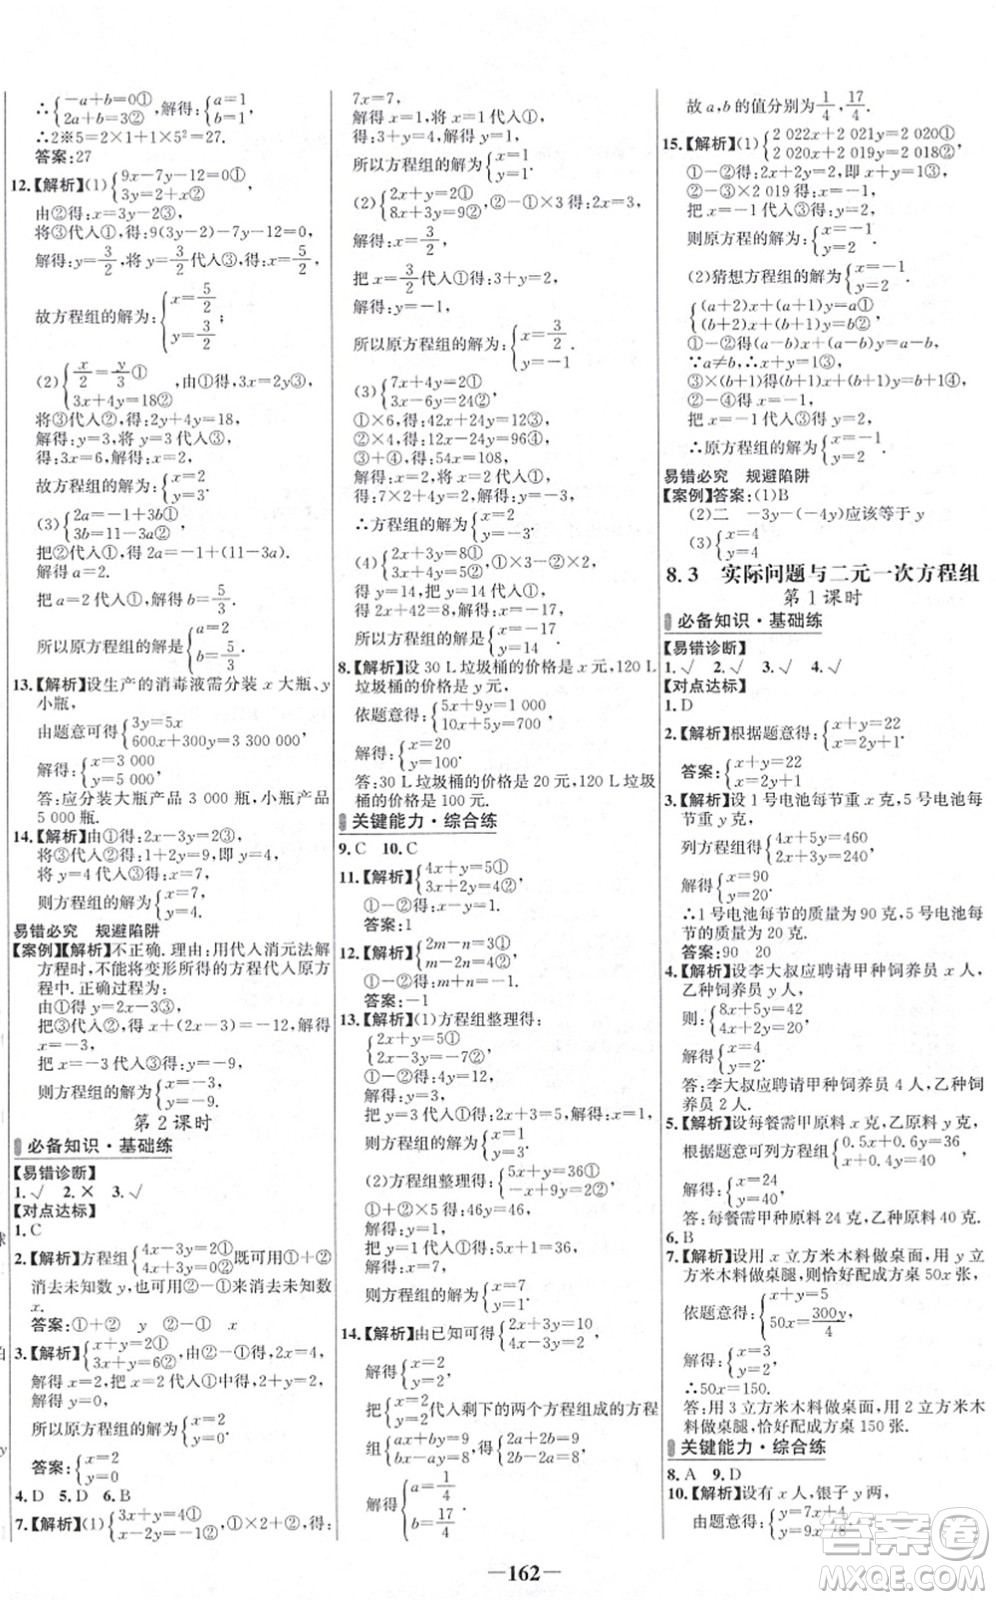 ∴{-a+b=0① 2a+b=3②,解得:{a=1 b=1
∴2※5=2×1+1×5²=27.
答案:27
12.【解析】(1){9x-7y-12=0① 3y=2+x②,
由②得:x=3y-2③,
将③代入①,得:9(3y-2)-7y-12=0,
解得:y=3/2,将y=3/2代入③,得:x=5/2,
故方程组的解为:{x=5/2 y=3/2;
(2){x/2=y/3① 3x+4y=18②,由①得:3x=2y③,
将③代入②得:2y+4y=18,
解得:y=3,将y=3代入③得:x=2,
故方程组的解为:{x=2 y=3.
(3){2a=-1+3b① 3b=11-3a②,
把②代入①,得2a=-1+(11-3a).
解得a=2.
把a=2代入②,得b=5/3.
所以原方程组的解是{a=2 b=5/3.
13.【解析】设生产的消毒液需分装x大瓶、y
小瓶,
由题意可得:{3y=5x 600x+300y=3 300 000,
解得:{x=3 000 y=5 000.
答:应分装大瓶产品3 000瓶,小瓶产品
5 000瓶.
14.【解析】由①得:x+y=1③,
将③代入②得:1+2y=9,即y=4,
将y=4代入③得:x+4=1,
则方程组的解为{
易错必究 规避陷阱
【案例】【解析】不正确.理由:用代入消元法解
方程时,不能将变形所得的方程代入原方
程中.正确过程为:
由①得y=2x-3③,
把③代入②,得x+(2x-3)=-12,解得
x=-3,
把x=-3代入③得:y=-9,
则方程组的解为{x=-3, y=-9.
第2课时
必备知识·基础练
【易错诊断】
1.√ 2.× 3.√
【对点达标】
1.C
2.【解析】方程组{4x-3y=2① 4x+3y=0②既可用①+②
消去未知数y;也可用②-①消去未知数
x.
答案:①+② y ②-① x
3.【解析】{x+y=2①, 3x+y=6②,由②-①得:2x=4,
解得x=2,把x=2代入①得:y=0,
所以原方程组的解为{x=2 y=0.
答案:{x=2 y=0
4.D 5.D 6.B
7.【解析】(1){3x+y=4① x-2y=-1②,①×2+②,得:
7x=7,
解得x=1,将x=1代入①,
得:3+y=4,解得:y=1,
所以方程组的解为{x=1 y=1;
(2){2x+y=2① 8x+3y=9②,②-①×3得:2x=3,
解得:x=3/2,
把x=3/2代入①得:3+y=2,
解得:y=-1,
所以原方程组的解为:{x=3/2 y=-1
(3){7x+4y=2① 3x-6y=24②,
①×6,得:42x+24y=12③,
②×4,得:12x-24y=96④,
③+④,得:54x=108,
解得:x=2,将x=2代入①,
得:7×2+4y=2,解得:y=-3,
∴方程组的解为{x=2 y=-3.
(4){2x+3y=8① 5x+6y=-1②,①×3-②×
得:y=14,
把y=14代入①,
得:2x+42=8,解得:x=-17,
所以方程组的解是{x=-17 y=14.
8.【解析】设30 L垃圾桶的价格是x元,120 L
垃圾桶的价格是y元,
依题意得:{5x+9y=1 000 10x+5y=700,
解得:{x=20 y=100.
答:30 L垃圾桶的价格是20元,120 L垃圾
桶的价格是100元.
关键能力·综合练
9.C 10.C
11.【解析】{4x+y=5① 3x+2y=4②,
①-②得:x-y=1.
答案:1
12.【解析】{2m-n=3① m-2n=4②,
①-②得:m+n=-1.
答案:-1
13.【解析】(1)方程组整理得:
{2x+y=5① x+y=4②,
①-②得:x=1,
把x=1代入②得:1+y=4,解得:y=3,
则方程组的解为{x=1 y=3.
(2)方程组整理得:{5x+y=36① -x+9y=2②,
①+②×5得:46y=46,
解得:y=1,
把y=1代入①得:5x+1=36,
解得:x=7,
则方程组的解为{x=7 y=1.
14.【解析】由已知可得{2x+3y=10 4x-3y=2,
解得{x=2 y=2,
把{x=2 y=2代入剩下的两个方程组成的方程
组{ax+by=9 bx-ay=8,得{2a+2b=9 2b-2a=8,
解得{a=1/4 b=17/4
故a,b的值分别为1/4,17/4.
15.【解析】(1){2 022x+2 021y=2 020① 2 020x+2 019y=2 018②,
①-②得:2x+2y=2,即x+y=1③,
②-③×2 019得:x=-1,
把x=-1代入③得:y=2,
则原方程的解为:{x=-1 y=2.
(2)猜想方程组的解为{x=-1 y=2.
{(a+2)x+(a+1)y=a① (b+2)x+(b+1)y=b②,
①-②得(a-b)x+(a-b)y=a-b,
∵a≠b,∴x+y=1③,
③×(b+1)得(b+1)x+(b+1)y=b+1④,
②-④得x=-1,把x=-1代入③得y=2,
∴原方程组的解为{x=-1 y=2.
易错必究 规避陷阱
【案例】答案:(1)B
(2)二 -3y-(-4y)应该等于y
(3){x=4 y=4
8.3 实际问题与二元一次方程组
第1课时
必备知识·基础练
【易错诊断】
1.√ 2.√ 3.√ 4.√
【对点达标】
1.D
2.【解析】根据题意得:{x+y=22 x=2y+1.
答案:{x+y=22 x=2y+1
3.【解析】设1号电池每节重x克,5号电池每
节重y克,
列方程组{4x+5y=460 2x+3y=240,
解得{x=90 y=20.
∴1号电池每节的质量为90克,5号电池
每节的质量为20克.
答案:90 20
4.【解析】设李大叔应聘请甲种饲养员x人,
乙种饲养员y人,
则:{8x+5y=42 4x+2y=20,
解得{x=4 y=2.
答:李大叔应聘请甲种饲养员4人,乙种饲
养员2人.
5.【解析】设每餐需甲原料x克,乙原料y克,
根据题意可列方程组{0.5x+0.6y=36 x+0.4y=40,
解得{x=24 y=40.
答:每餐需甲种原料24克,乙原料40克.
6.B
7.【解析】设用x立方米木料做桌面,用y立
方米木料做桌腿,恰好配成方桌50x张,
依题意得:{x+y=5 50x=300y/4,
解得:{x=3 y=2.
∴50x=150.
答:用3立方米木料做桌面,用2立方米木
料做桌腿,恰好配成方桌150张.
关键能力·综合练
8.A 9.D
10.【解析】设有x人,银子y两,
由题意得:{y=7x+4 y=9x-8,
—162—
答案圈
MXQE.COM